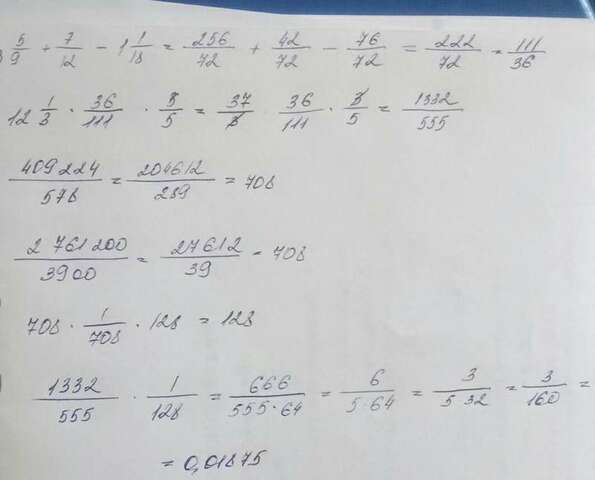 5/9 + 7/12 - 1 1/18 = 256/72 + 42/72 - 76/72 = 222/72 = 111/36
12 1/3 · 36/111 · 3/5 = 37/3 · 36/111 · 3/5 = 1332/555
409224/578 = 204612/289 = 708
2 761200/3900 = 27612/39 = 708
708 · 1/708 · 128 = 128
1332/555 · 1/128 = 666/555·64 = 6/5·64 = 3/5 32 = 3/160 =
= 0,01875